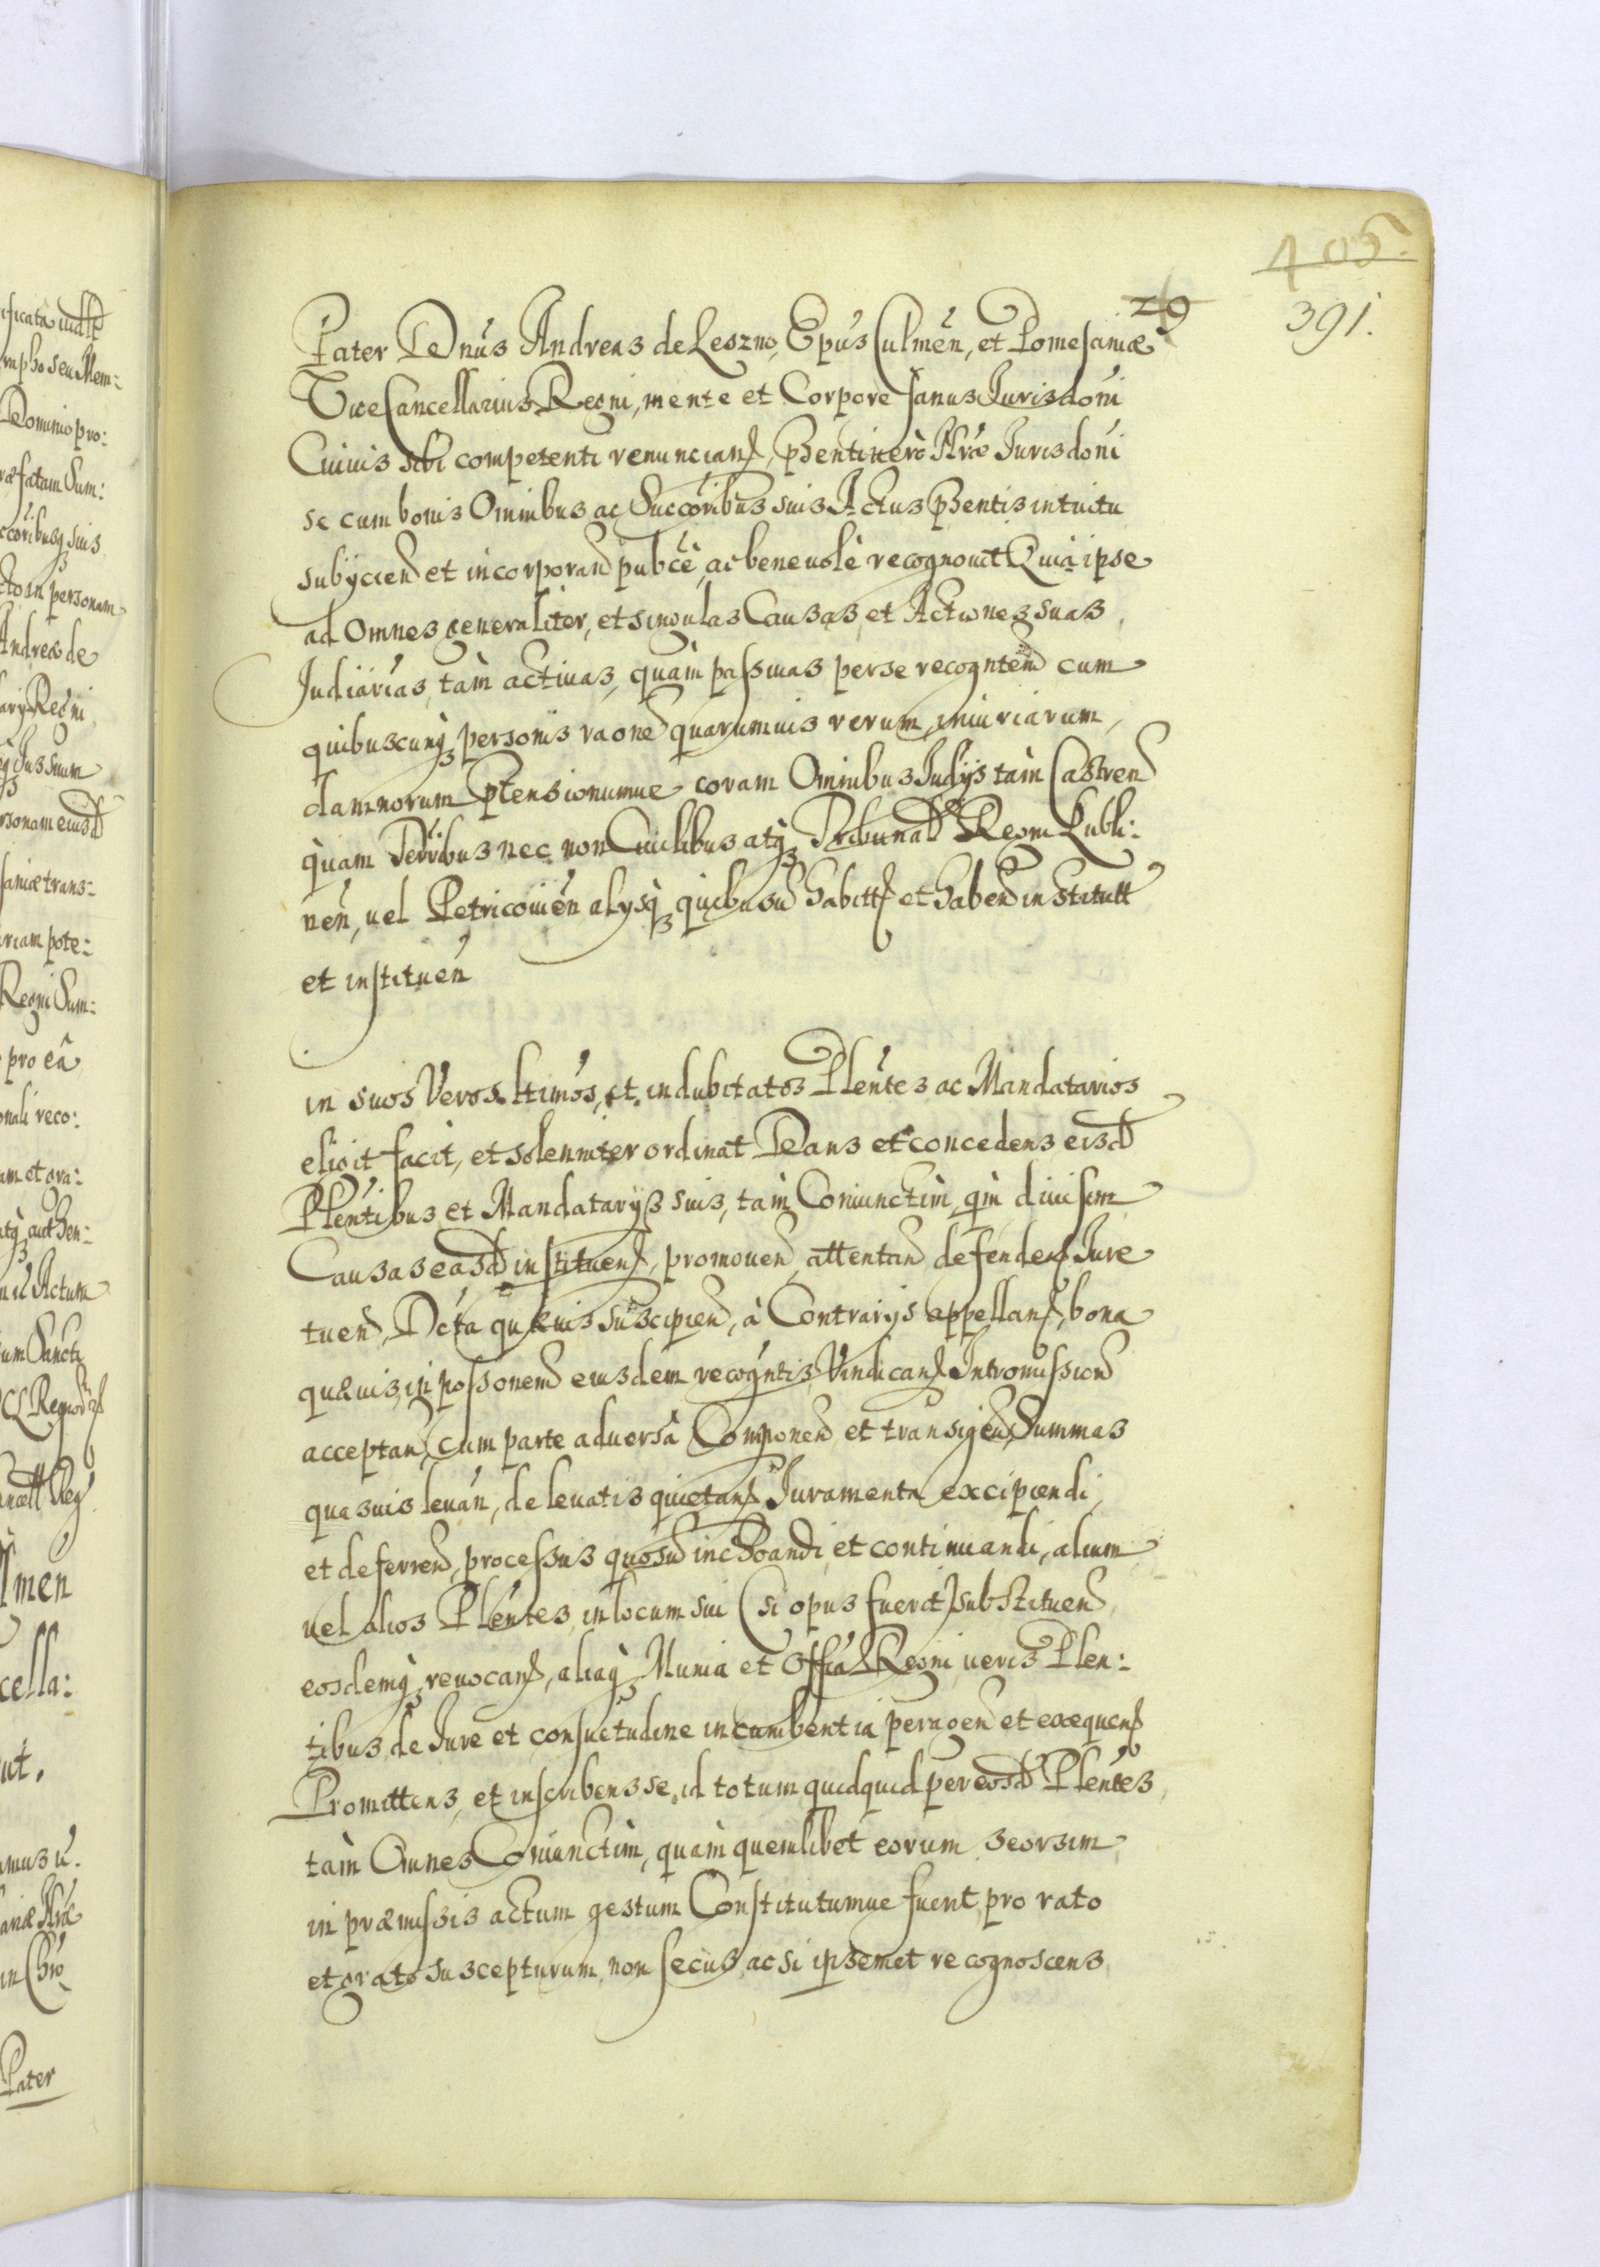 405.
391.
29
Pater Dnus Andreas de Leszno, Epus Culmen, et Pomesaniæ
ViceCancellarius Regni, mente et Corpore sanus Jurisdoni
Cuiuis sibi competenti renuncians, pnti vero Nræ Jurisdoni
se cum bonis Omnibus ac Succoribus suis Actus pntis intuitu
subÿcien et incorporan publcè, ac beneuolè recognouit Quia ipse
ad Omnes generaliter, et singulas Causas, et Actiones suas,
Judiarias, tàm actiuas, quàm passiuas per se recognten cum
quibuscunq personis raone quarumuis rerum, iniuriarum,
damnorum ptensionumue coram Omnibus Judÿs tàm Castren
quam Terribus nec non Ciuilibus atq Tribunal Regni Lubli:
nen, uel Petricouien alÿsq quibusu habitt et haben institutt
et instituen
in suos Veros Ltimos, et indubitatos Plentes ac Mandatarios
eligit facit, et solenniter ordinat Dans et concedens eisd
Plentibus et Mandatarÿs suis, tàm Coniunctim, qm diuisim
Causas easd instituen, promouen, attentan defenden Jure
tuen, Dcta quæuis suscipien, à Contrarÿs appellan, bona
quæuis, in possonem eiusdem recogntis Vindican Intromission
acceptan, cum parte aduersâ Componen et transigen, Summas
quasuis leuan, de leuatis quietan Juramenta excipiendi,
et deferren, processus quosu inchoandi et continuandi, alium
uel alios Plentes, in locum sui (si opus fuerit) substituen,
eosdemq, reuocan, aliaq Munia et Offia Regni ueris Plen:
tibus de Jure et consuetudine incumbentia peragen et exequen
Promittens, et inscribens se, id totum quidquid per eosd Plentes,
tàm Omnes Coniunctim, quàm quemlibet eorum seorsim
in præmissis actum gestum Constitutumue fuerit, pro rato
et grato suscepturum, non secus, ac si ipsemet recognoscens